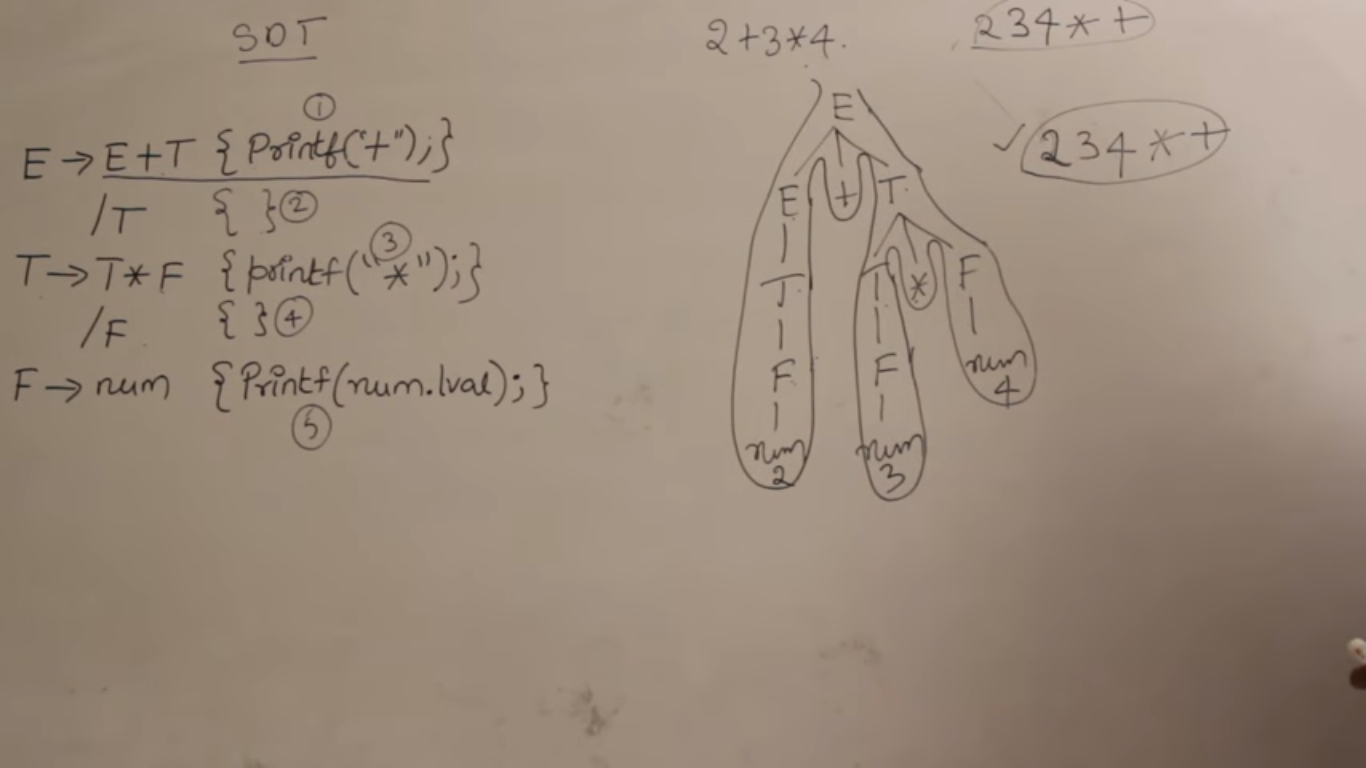 SDT
①
E → E+T { Printf("+"); }
/T { } ②
③
T → T* F { printf("*"); }
/F { } ④
F → num { Printf(num.lval); }
⑤
2+3*4.
234*+
✓ 234*+
E
E + T
T T * F
F F num
4
num num
2 3